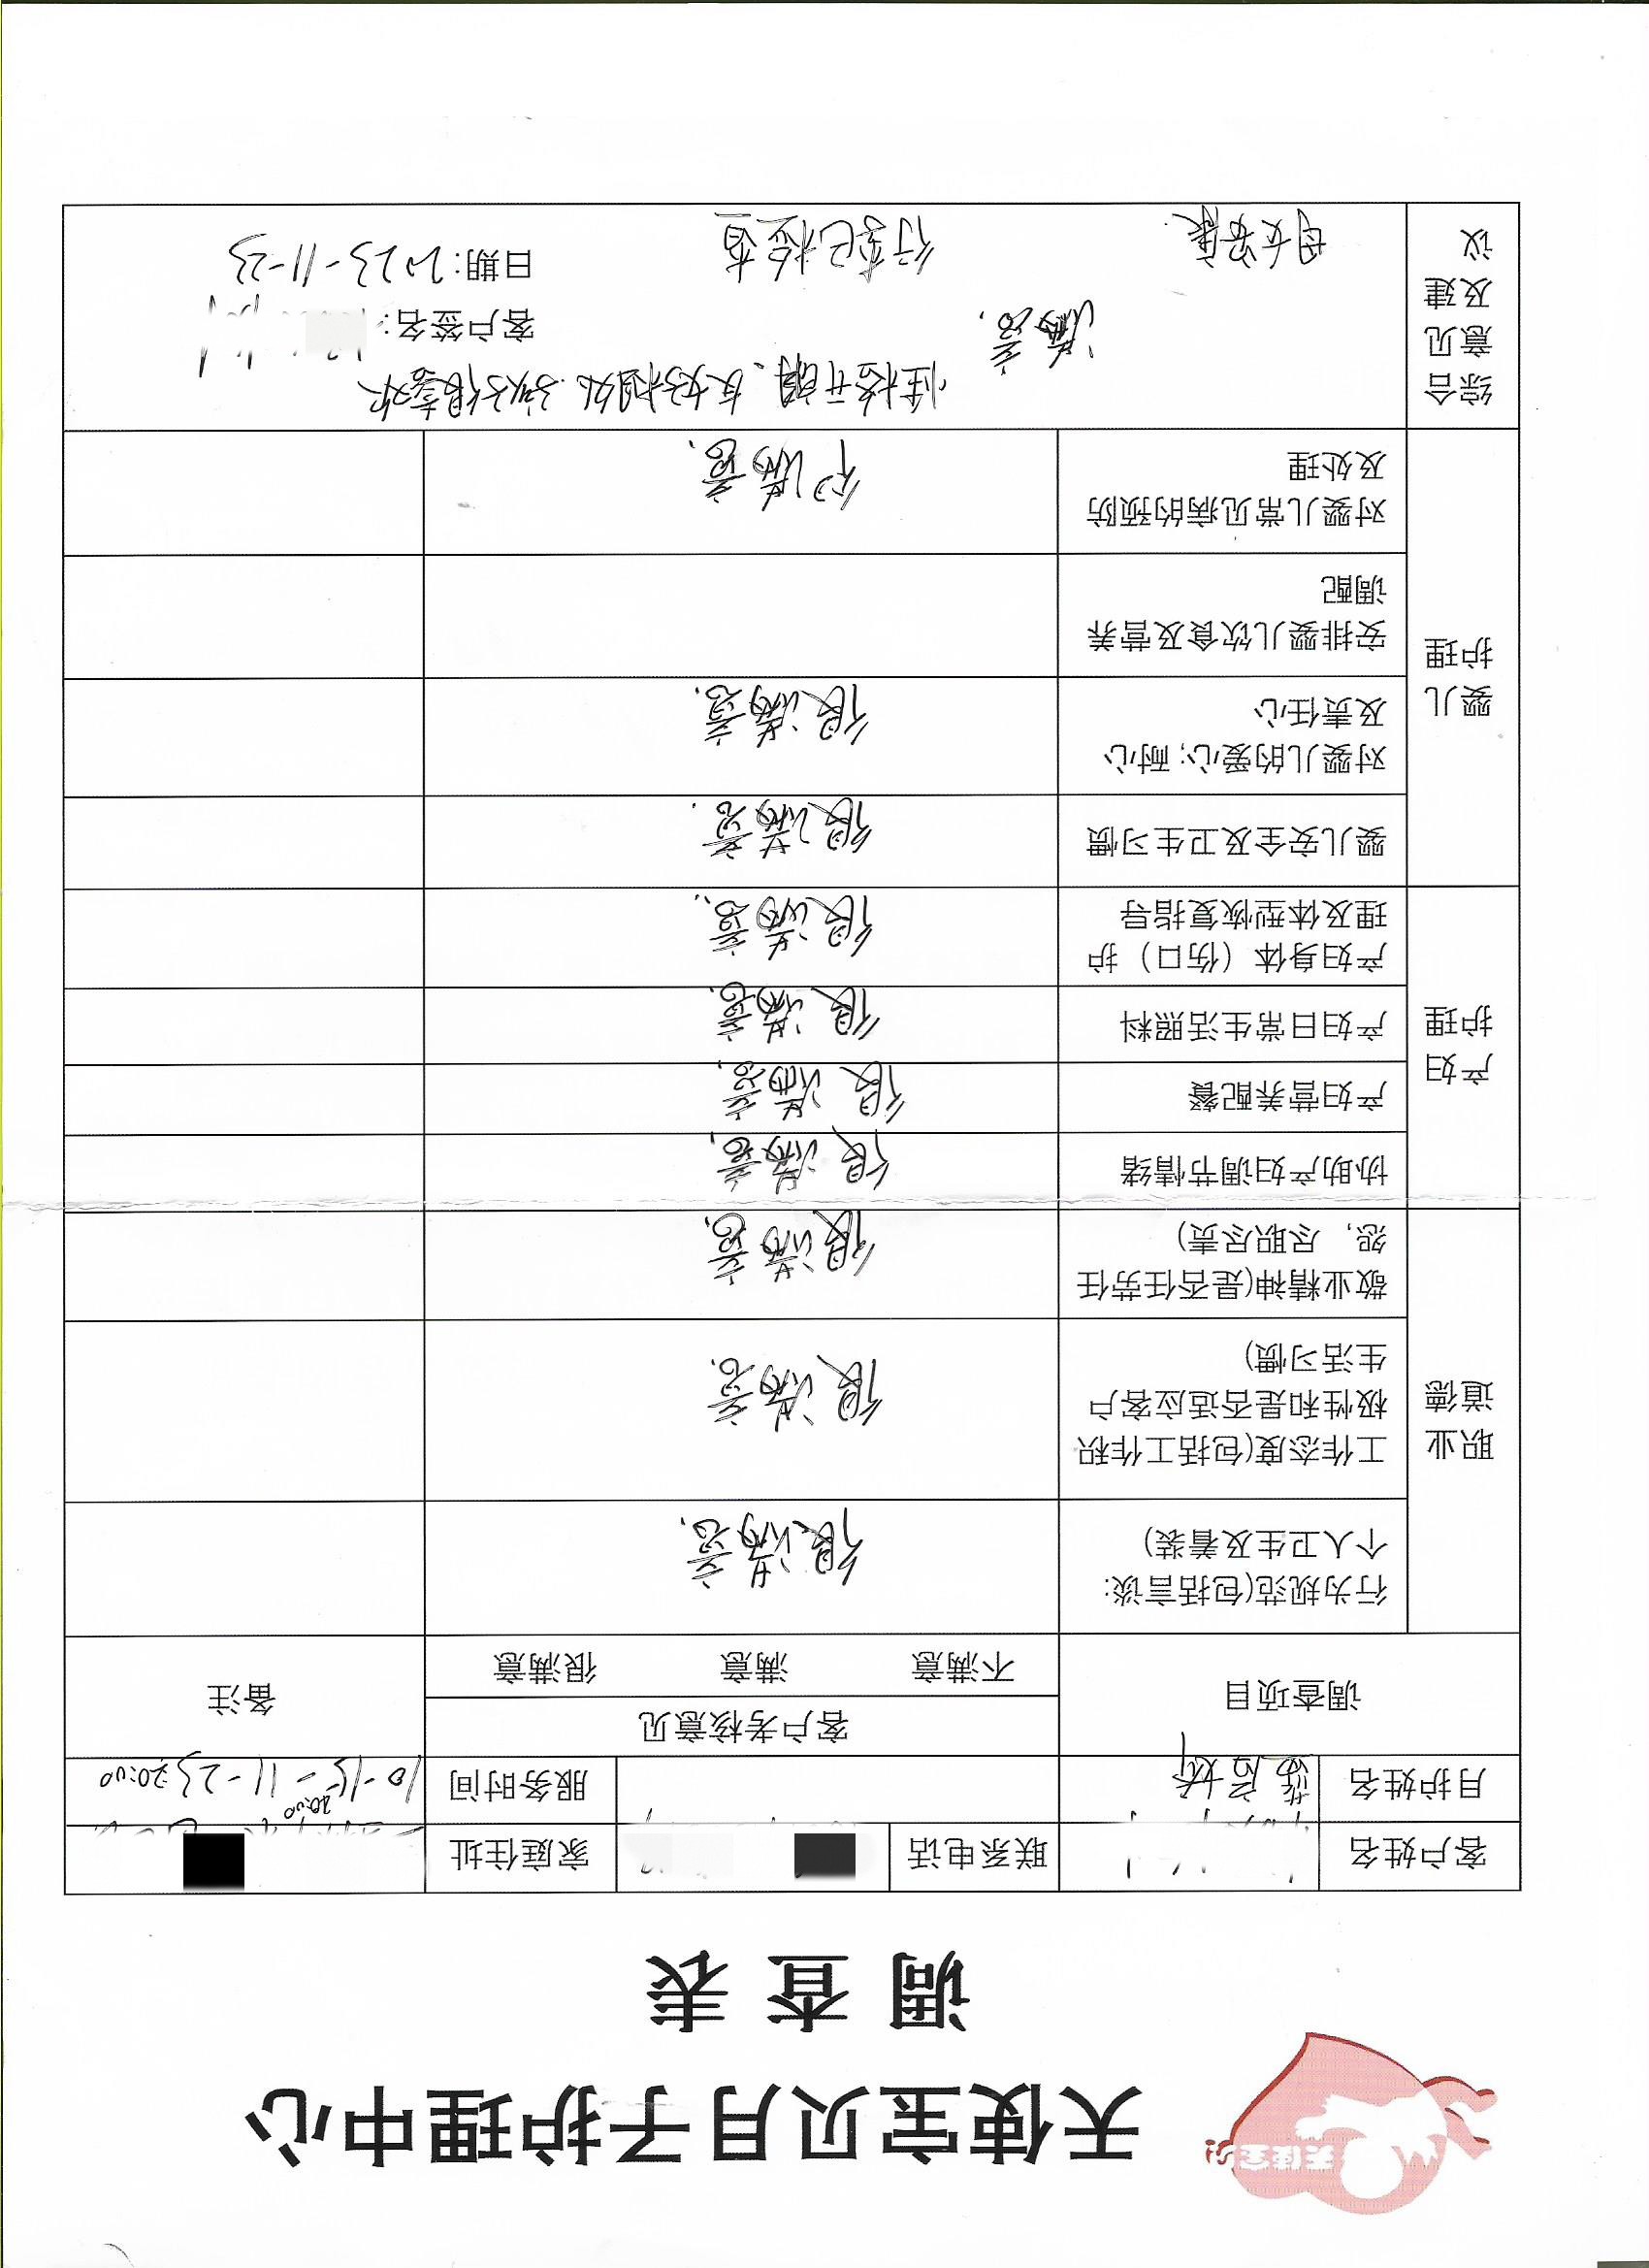 天使宝贝
天使宝贝月子护理中心
调查表
客户姓名 联系电话 家庭住址
月护姓名 服务时间 10-15 20:00 - 11-23 20:00
调查项目 客户考核意见 备注
不满意 满意 很满意
职业道德
行为规范(包括言谈:
个人卫生及着装)
很满意.
工作态度(包括工作积
极性和是否适应客户
生活习惯)
很满意.
敬业精神(是否任劳任
怨, 尽职尽责)
很满意.
产妇护理
协助产妇调节情绪 很满意.
产妇营养配餐 很满意.
产妇日常生活照料 很满意.
产妇身体（伤口）护
理及体型恢复指导
很满意.
婴儿护理
婴儿安全及卫生习惯 很满意.
对婴儿的爱心; 耐心
及责任心
很满意.
安排婴儿饮食及营养
调配
对婴儿常见病的预防
及处理
很满意.
综合意见及建议
性格开朗、友好相处.孩子很喜欢
满意.
客户签名:
母女安康. 行李已检查 日期: 2023-11-23